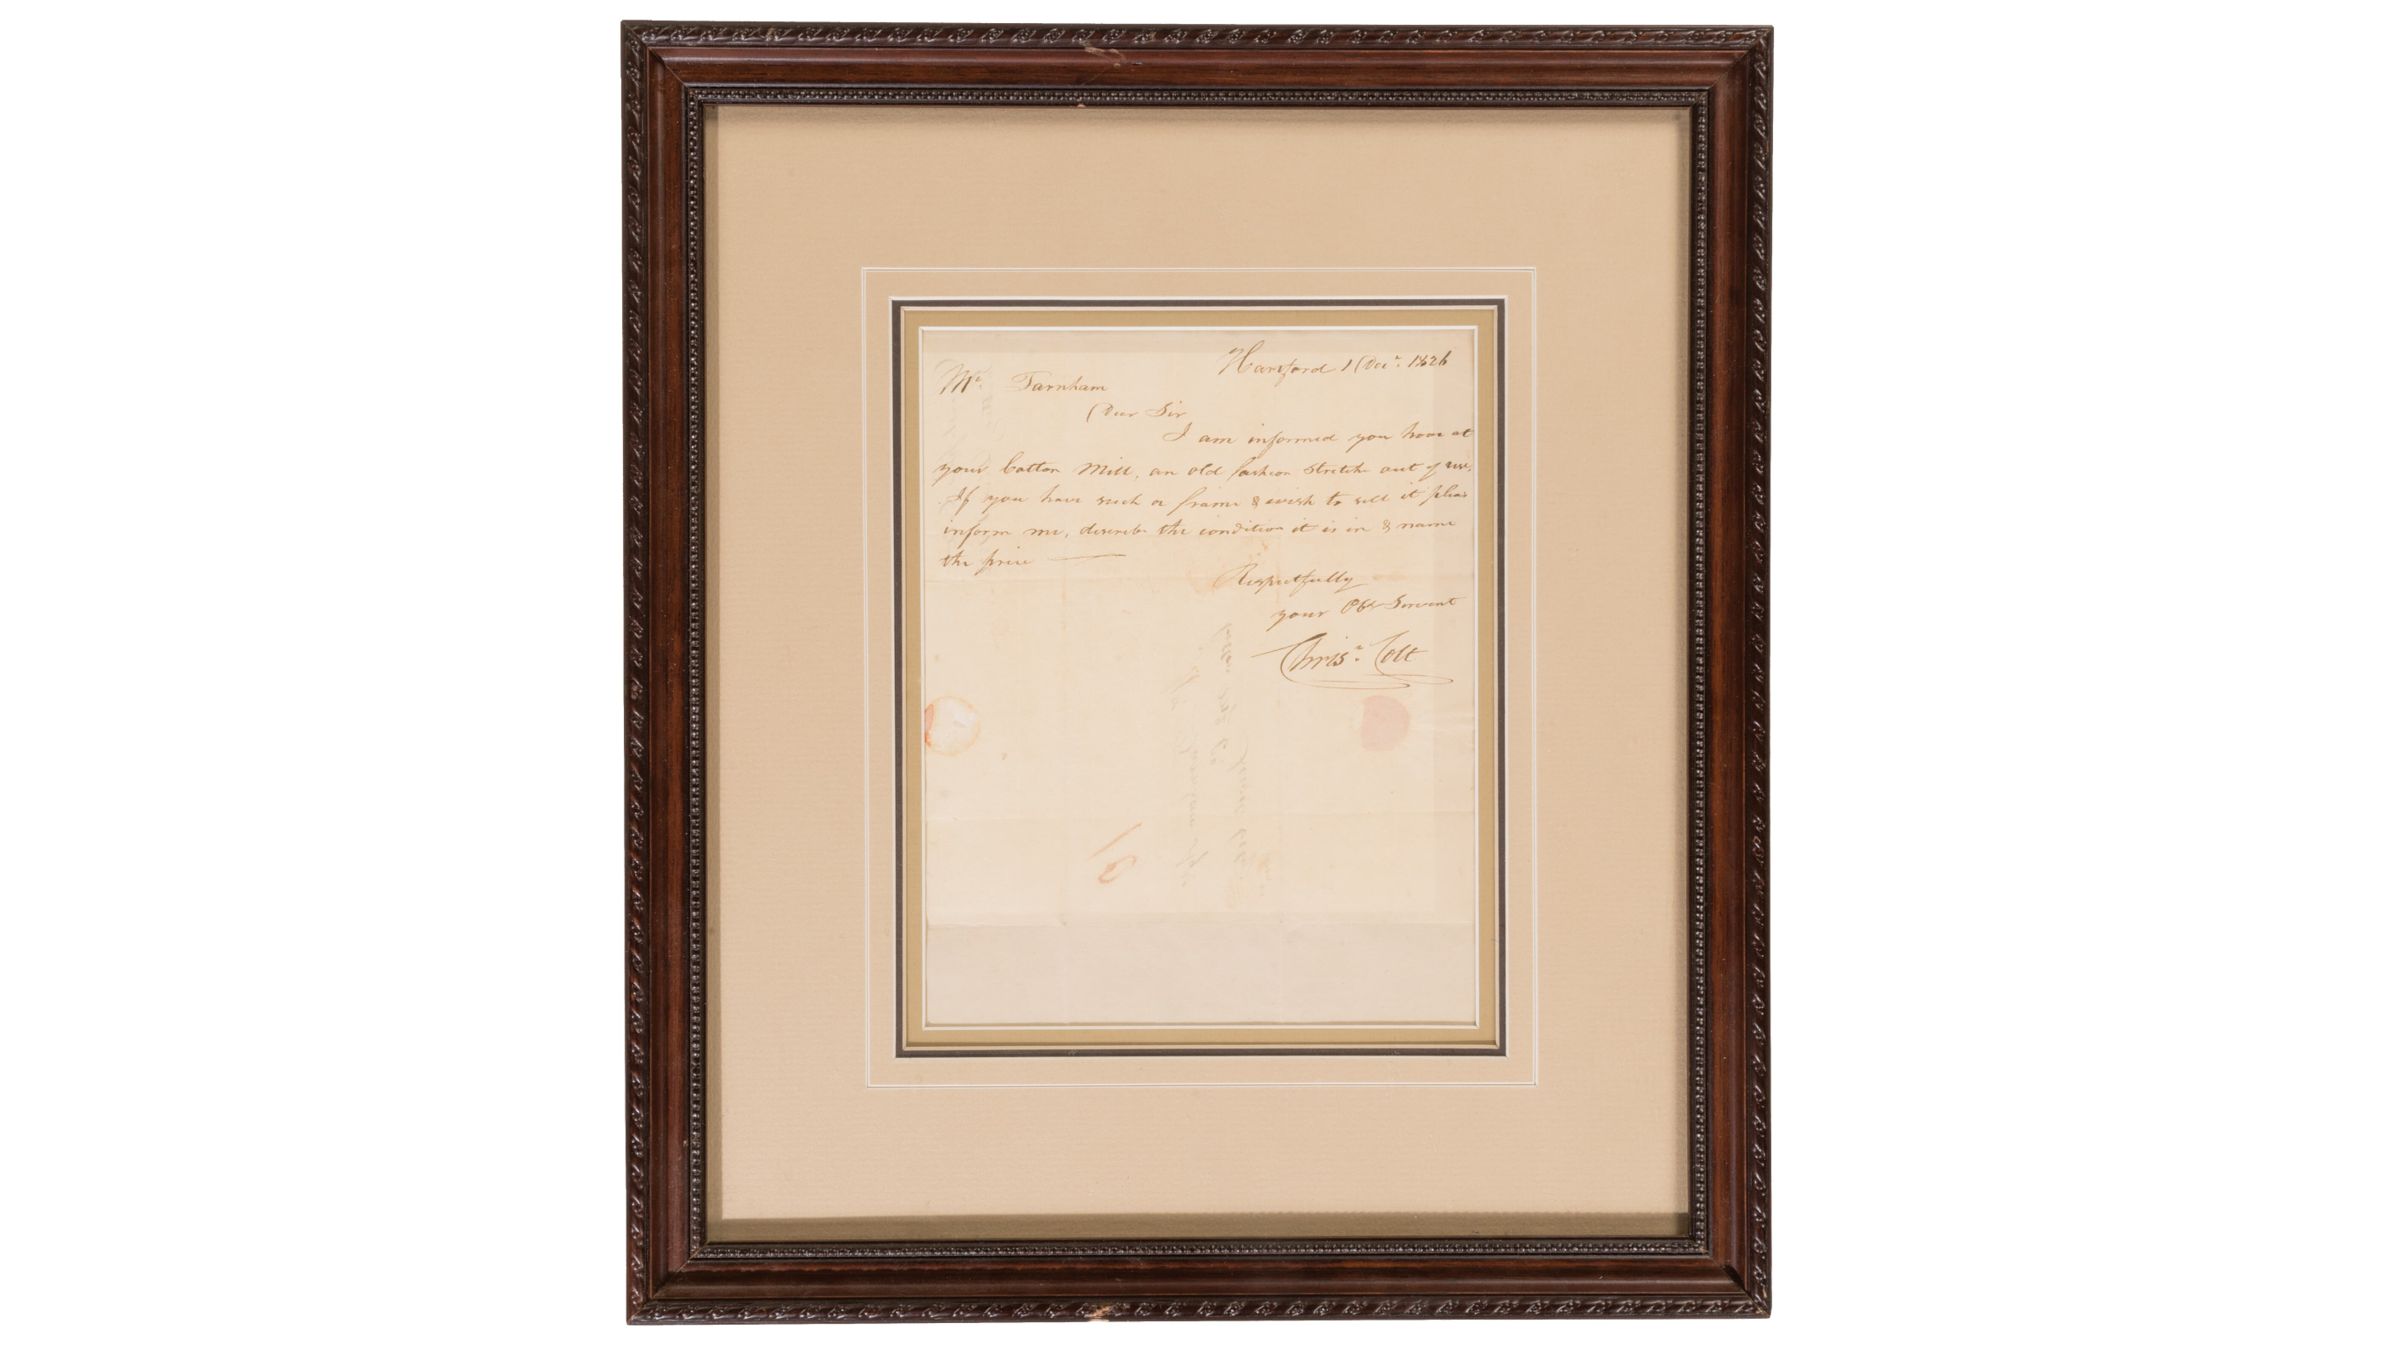 Hartford 1 Decr. 1826
Mr. Farnham
Dear Sir
I am informed you have at
your Cotton Mill, an old fashion Stretch out of use,
If you have such a frame & wish to sell it please
inform me, describe the condition it is in & name
the price
Respectfully
your Obt Servant
Chrisr. Colt
10